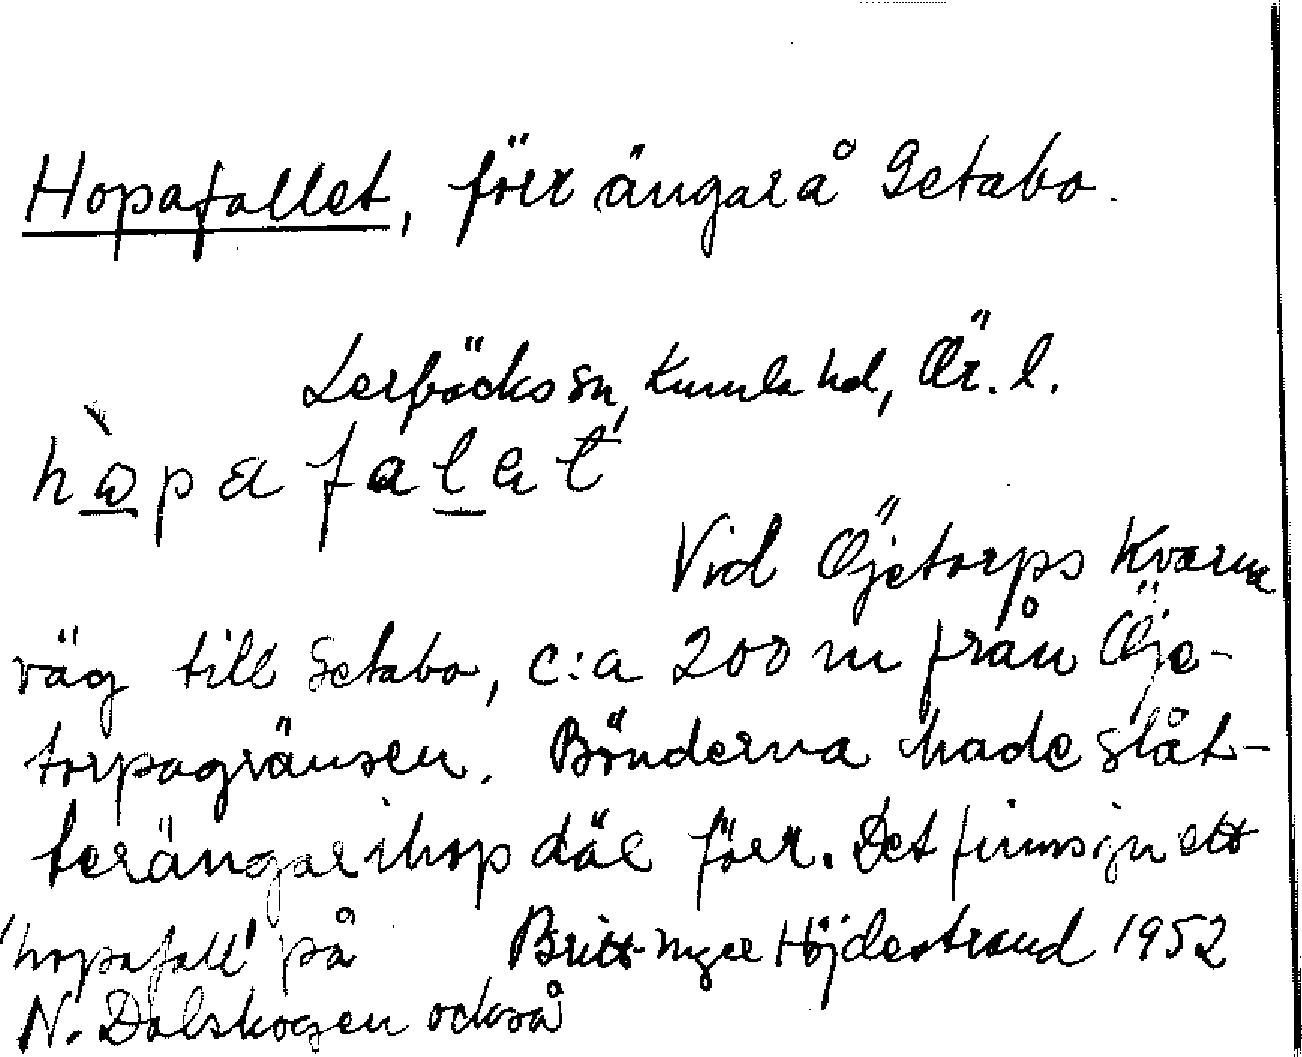 Hopafallet, förr ängar å Getabo.
Lerbäcks sn, Kumla hd, Ör. l.
hòpafalat
Vid Öjetorps Kvarn
väg till Getabo, c:a 200 m från Öje-
torpagränsen. Bönderna hade slåt-
terängar ihop där förr. Det finns ju ett
'hopafall' på
Britt-Inger Höjdestrand 1952
N. Dalskogen också